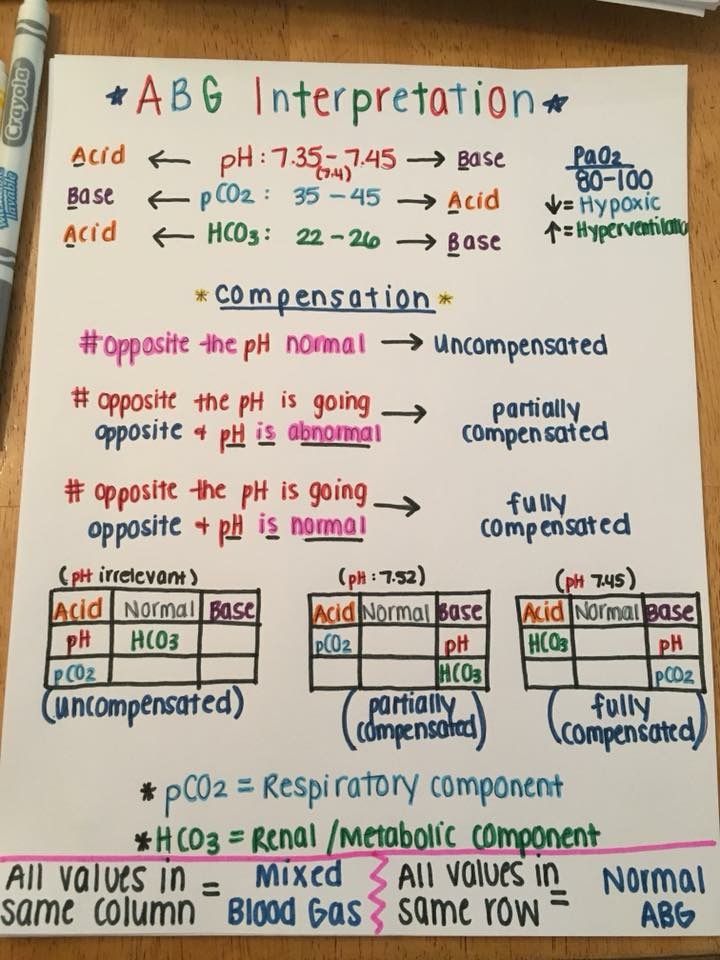 Crayola
Washable
*ABG Interpretation*
Acid ← pH: 7.35-7.45 → Base
(7.4)
Base ← pCO2: 35-45 → Acid
Acid ← HCO3: 22-26 → Base
PaO2
80-100
↓= Hypoxic
↑=Hyperventilatio
*Compensation*
#opposite the pH normal → uncompensated
# opposite the pH is going →
opposite + pH is abnormal
partially
compensated
# opposite the pH is going →
opposite + pH is normal
fully
compensated
(pH irrelevant)
Acid Normal Base
pH HCO3
pCO2
(uncompensated)
(pH: 7.52)
Acid Normal Base
pCO2 pH
HCO3
(partially
compensated)
(pH 7.45)
Acid Normal Base
HCO3 pH
pCO2
(fully
compensated)
*pCO2 = Respiratory component
*HCO3 = Renal/Metabolic component
All values in
same column = Mixed
Blood Gas
All values in
same row = Normal
ABG